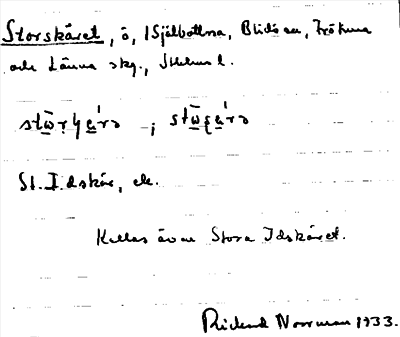 Storskäret, ö, i Själbottna, Blidö sn, Frötuna
och Länna skg., Sthlms l.
St. Idskär, ek.
Kallas även Stora Idskäret.
Rickard Norrman 1933.